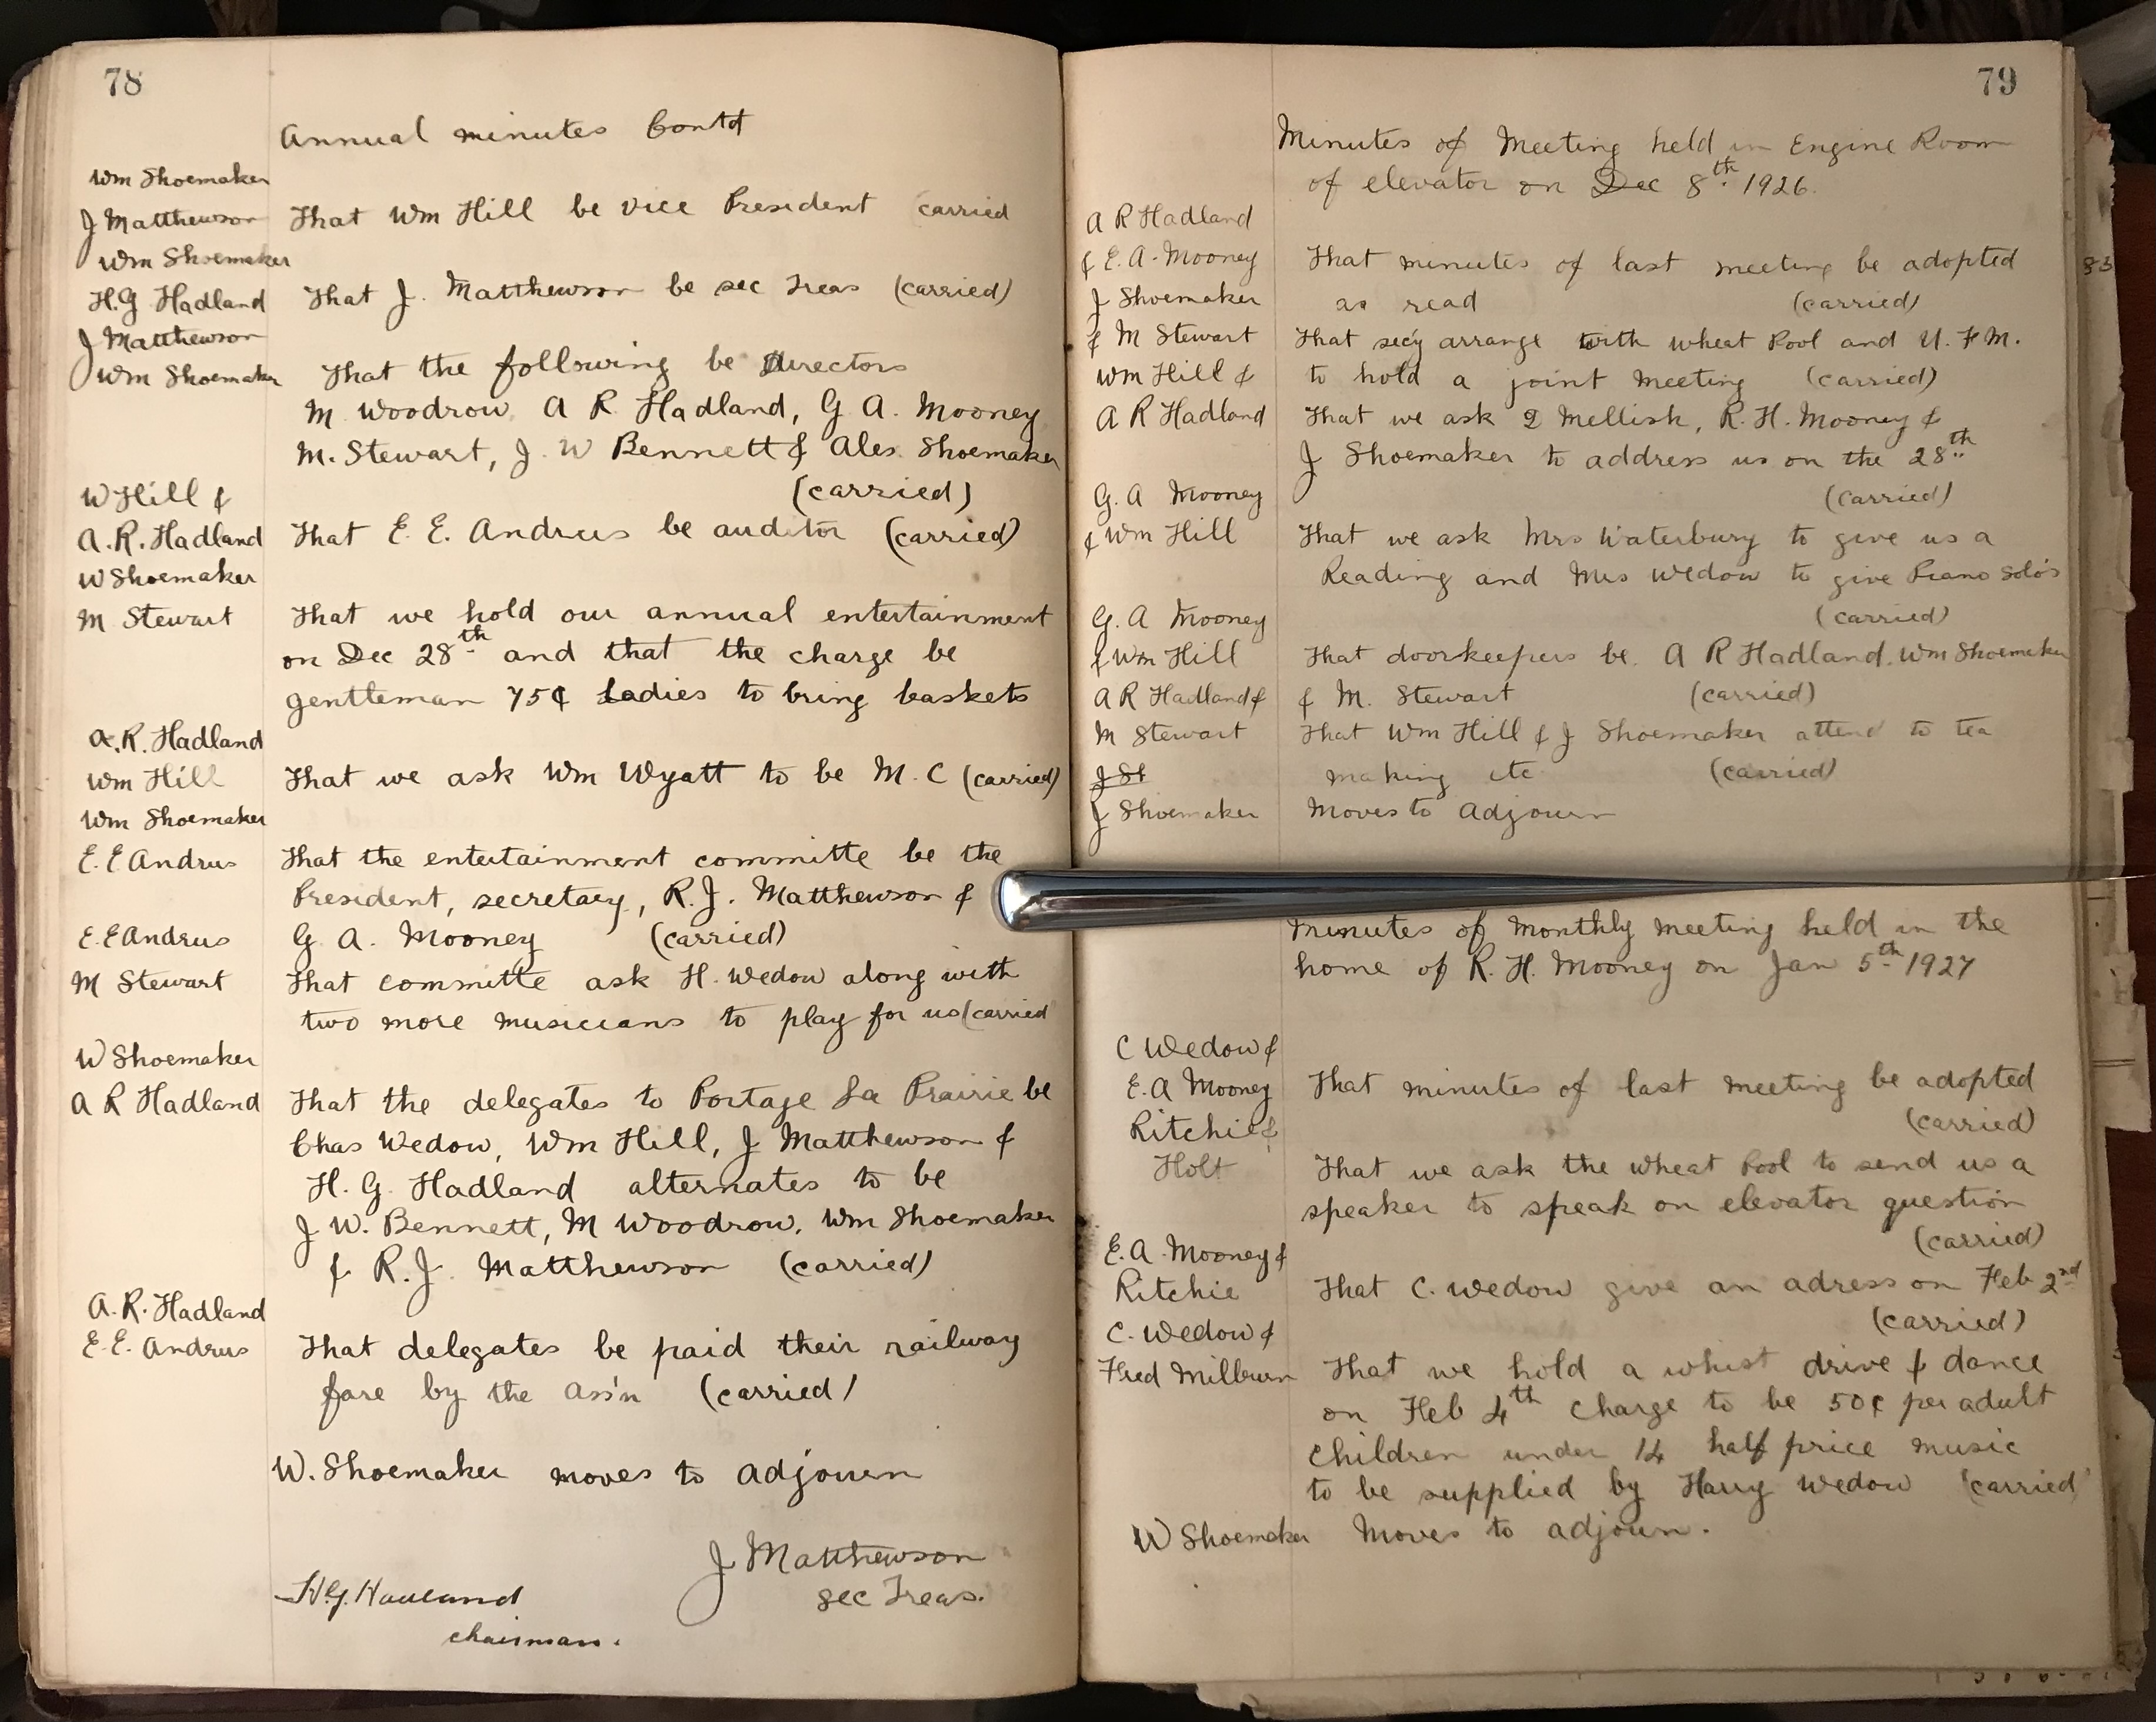 78
Annual minutes Contd
Wm Shoemaker
J Matthewson That Wm Hill be vice President (carried
Wm Shoemaker
H.G Hadland That J. Matthewson be sec Treas (carried)
J Matthewson
Wm Shoemaker That the following be Directors
M. Woodrow, A R. Hadland, G A. Mooney
M. Stewart, J. W Bennett & Alex. Shoemaker
W Hill & (carried)
A.R. Hadland That E. E. Andrus be auditor (carried)
W Shoemaker
M Stewart That we hold our annual entertainment
on Dec 28th and that the charge be
gentleman 75¢ Ladies to bring baskets
A.R. Hadland
Wm Hill That we ask Wm Wyatt to be M. C (carried)
Wm Shoemaker
E. E Andrus That the entertainment committe be the
President, secretary, R. J. Matthewson &
E. E Andrus G. A. Mooney (carried)
M Stewart That committe ask H. Wedow along with
two more musicians to play for us (carried
W Shoemaker
A R Hadland That the delegates to Portage La Prairie be
Chas Wedow, Wm Hill, J Matthewson &
H. G. Hadland alternates to be
J W. Bennett, M Woodrow, Wm Shoemaker
& R. J. Matthewson (carried)
A. R. Hadland
E. E. Andrus That delegates be paid their railway
fare by the Ass'n (carried)
W. Shoemaker moves to adjourn
J Matthewson
H.G. Hadland sec Treas.
chairman.
79
Minutes of Meeting held in Engine Room
of elevator on Dec 8th. 1926.
A R Hadland
& E. A. Mooney That minutes of last meeting be adopted
J Shoemaker as read (carried)
& M Stewart That sec'y arrange with wheat Pool and U. F M.
Wm Hill & to hold a joint meeting (carried)
A R Hadland That we ask D Mellish, R. H. Mooney &
J Shoemaker to address us on the 28th
G. A Mooney (carried)
& Wm Hill That we ask Mrs Waterbury to give us a
Reading and Mrs Wedow to give Piano Solo's
G. A Mooney (carried)
& Wm Hill That doorkeepers be. A R Hadland, Wm Shoemaker
A R Hadland & & M. Stewart (carried)
M Stewart That Wm Hill & J Shoemaker attend to tea
J St making etc (carried)
J Shoemaker Moves to Adjourn
Minutes of Monthly meeting held in the
home of R. H. Mooney on Jan 5th 1927
C Wedow &
E. A Mooney That minutes of last meeting be adopted
Ritchie & (carried)
Holt That we ask the Wheat Pool to send us a
speaker to speak on elevator question
E. A. Mooney & (carried)
Ritchie That C. Wedow give an adress on Feb 2nd
C. Wedow & (carried)
Fred Milburn That we hold a whist drive & dance
on Feb 4th charge to be 50¢ per adult
children under 14 half price music
to be supplied by Harry Wedow (carried)
W Shoemaker Moves to adjourn.